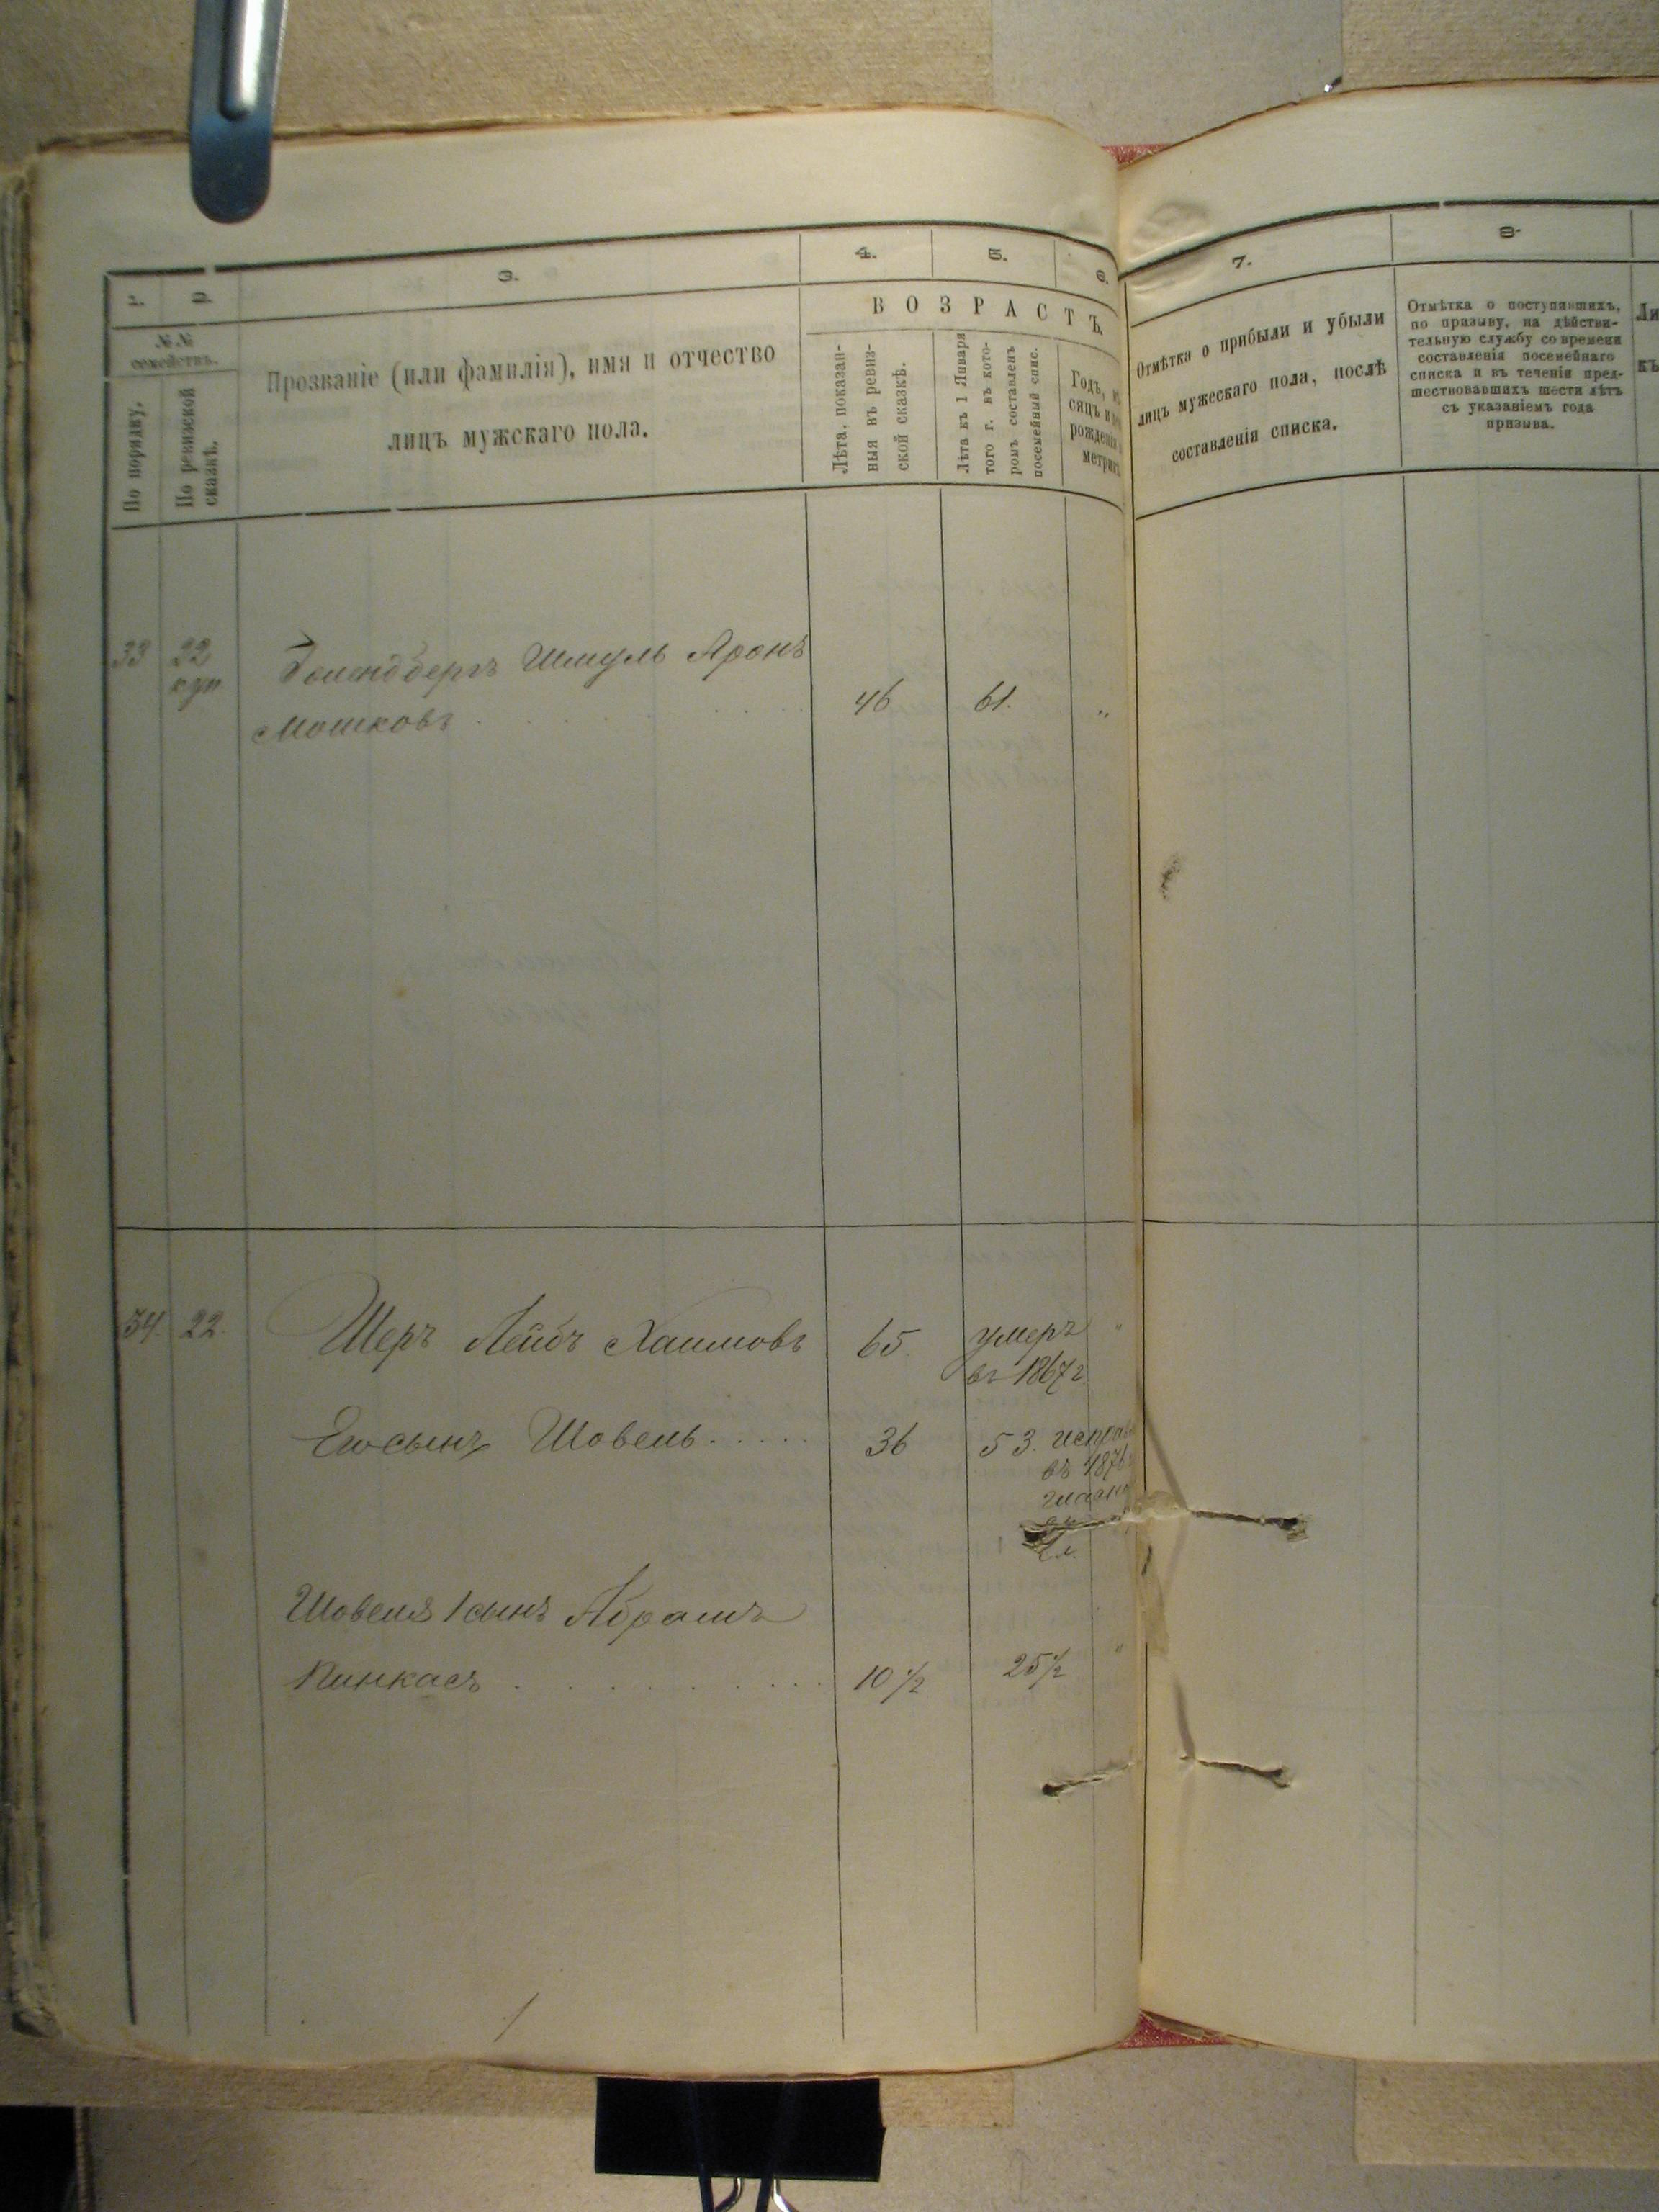 1. 2. 3. 4. 5. 6. 7. 8.
№№ семействъ.
По порядку.
По ревизской сказкѣ.
Прозваніе (или фамилія), имя и отчество
лицъ мужскаго пола.
ВОЗРАСТЪ.
Лѣта, показан-
ныя въ ревиз-
ской сказкѣ.
Лѣта къ 1 Января
того г. въ кото-
ромъ составленъ
посемейный спис.
Годъ,
сяцъ и
рожденія
метрик
Отмѣтка о прибыли и убыли
лицъ мужескаго пола, послѣ
составленія списка.
Отмѣтка о поступившихъ,
по призыву, на дѣйстви-
тельную службу со времени
составленія посемейнаго
списка и въ теченіи пред-
шествовавшихъ шести лѣтъ
съ указаніемъ года
призыва.
Ли
къ
33 22 Шмуль Аронъ
куп
Мошковъ 46 61. "
34. 22. Шеръ Лейбъ Хаимовъ 65. умеръ "
въ 1867 г
Его сынъ Шовель..... 36 53.
въ 1876
Шовеля 1 сынъ Абрамъ
Пинкасъ 10 1/2 25 1/2 "